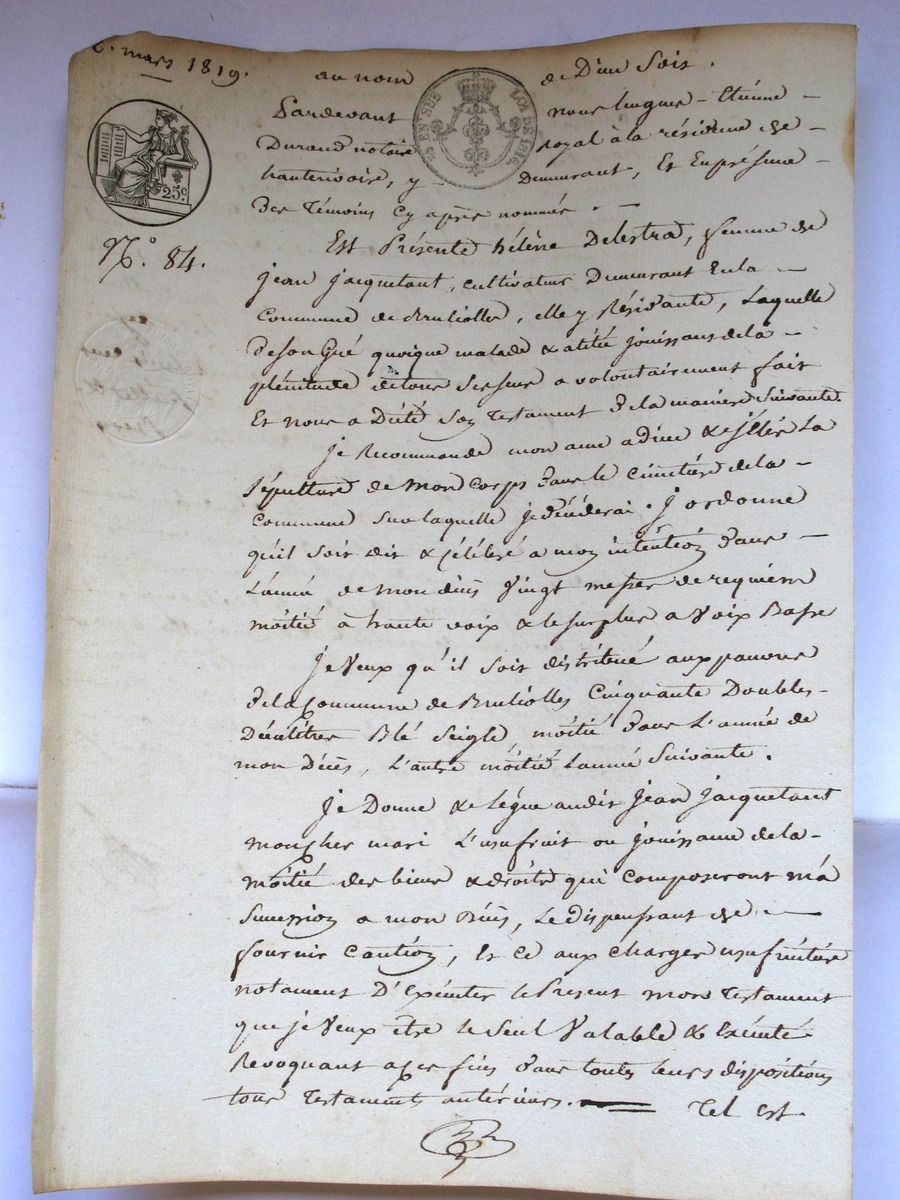 2. mars 1819.
au nom de Dieu Soit.
Pardevant nous hugues-Etienne
Durand notaire royal à la résidence de
hauterivoire, y Demeurant, Et En présence
Des Témoins Cy après nommés.
Est Présente hélène Delestra, femme de
jean jacquetant, cultivateur Demeurant En la
Commune de Bruliolles, elle y Résidante, Laquelle
de son Gré quoique malade & alitée jouissant de la
plénitude de tous Ses Sens a volontairement fait
Et nous a Dicté Son Testament de la manière Suivante
je Recommande mon ame a dieu & élis La
Sépulture de Mon Corps dans le cimetière de la
Commune sur laquelle je décéderai. J'ordonne
qu'il soit dit & Célébré a mon intention dans
L'année de Mon décès Vingt messes de requiem
moitié à haute voix & le surplus a Voix Basse
je Veux qu'il soit distribué aux pauvres
de la Commune de Brulliolles Cinquante Doubles-
Décalitres Blé Seigle moitié dans L'année de
mon Décès, L'autre moitié L'année Suivante.
je Donne & Lègue audit jean jacquetant
mon Cher mari L'usufruit ou jouissance de la
moitié des biens & droits qui Composeront ma
Succession a mon Décès, Le dispensant de
fournir Caution, Et Ce aux charges usufruitière
notament D'Exécuter le Présent mon Testament
que je Veux être le Seul Valable & Exécuté
Revoquant a Ces fins dans toutes leurs dispositions
tous Testaments antérieurs. Tel Est
N.° 84.
25.c
EN SUS
LOI DE 1816.